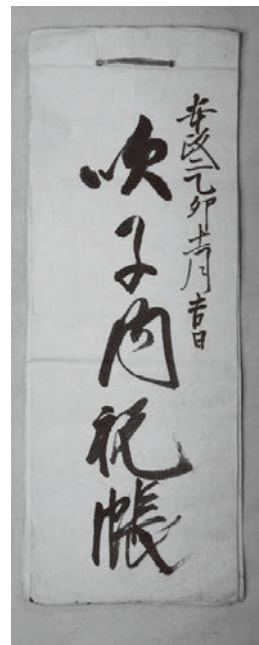 安政二乙卯十一月吉日
吹子内祝帳